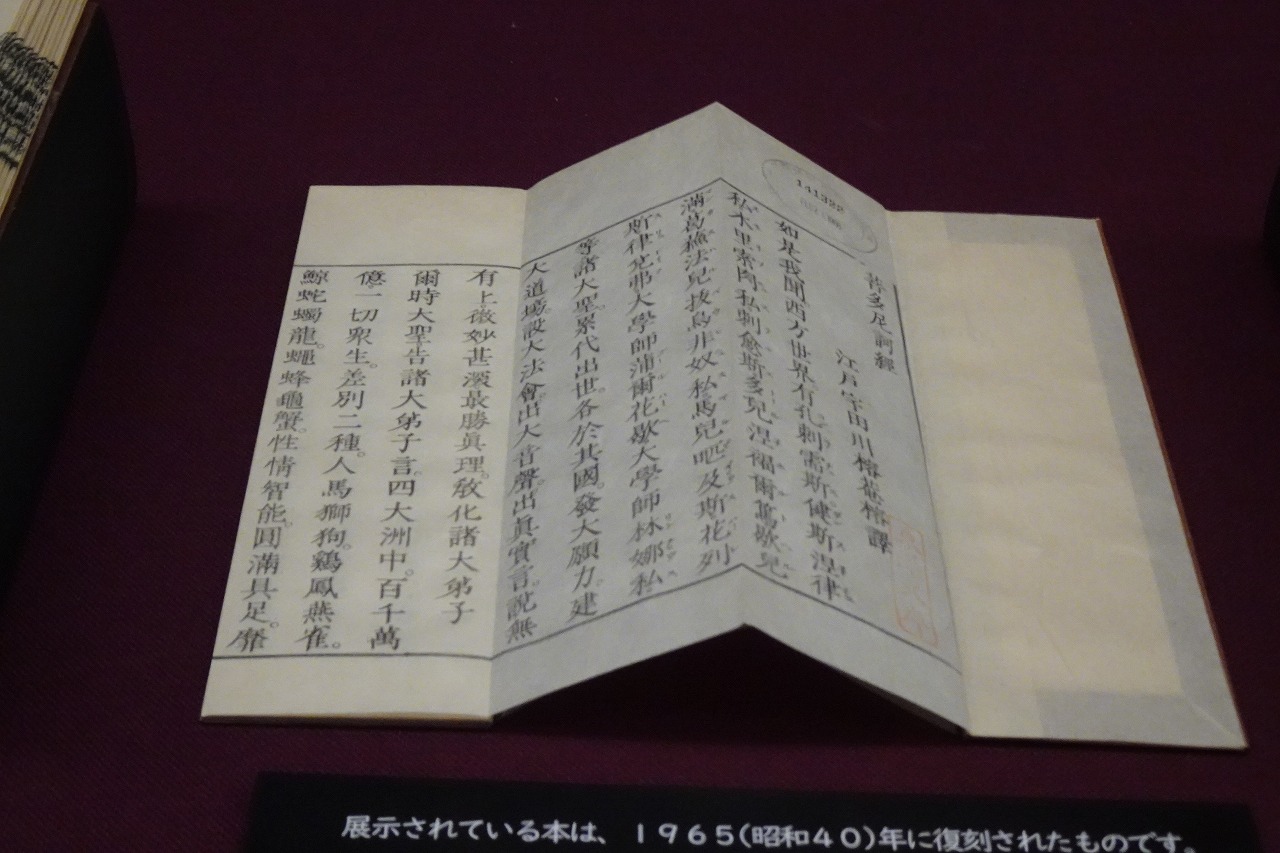 141322
菩多尼訶經
江戸宇田川榕菴榕譯
如是我聞西方世界有孔刺需斯健斯涅律
私木里索肉私刺愈斯多兒涅褐爾篤歇兒
滿葛蕪法兒抜烏非奴私馬兒吧及斯花列
斯律兌弗大學師蒲爾花歇大學師林娜私
等諸大聖。累代出世。各於其國。發大願力。建
大道場。設大法會。出大音聲。出眞實言。説無
有上。微妙甚深最勝眞理。敎化諸大弟子
爾時大聖。告諸大弟子言。四大洲中。百千萬
億。一切衆生。差別二種。人馬獅狗。鷄鳳燕雀。
鯨蛇蠋龍。蠅蜂龜蟹。性情智能。圓滿具足。靡
展示されている本は、1965(昭和40)年に復刻されたものです。